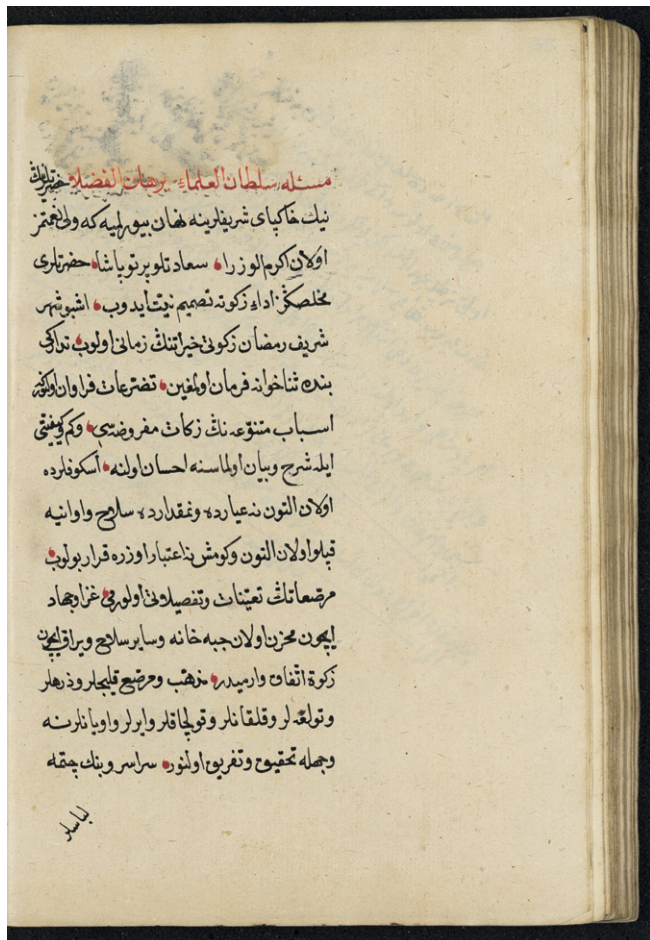 مسئله سلطان العلماء برهان الفضلاء حضرتلرينك
نيك خاكپاى شريفلرينه نهان بيورلميه كه ولى نعمتمز
اولان اكرم الوزراء سعادتلو پرتو پاشا حضرتلرى
مخلصكز اداء زكوته تصميم نيت ايدوب اشبو شهر
شريف رمضان زكوتى خيراتنك زمانى اولوب تداركى
بنده ثناخوانه فرمان اولمغين تضرعات فراوان اولنور كه
اسباب متنوعه نك زكات مفروضه سى وكم وكيفيتى
ايله شرح وبيان اولماسنه احسان اولنه اسكوفلرده
اولان التون نه عيارده ونمقدارده سلاح واوانيه
قپلو اولان التون وكومش نه اعتبار اوزره قرار بولوب
مرصعاتك تعيينات وتفصيلاتى اولورمى غزا وجهاد
ايچون مخزن اولان جبه خانه وساير سلاح ويراق ايچون
زكوة اتفاق وارميدر مذهب ومرصع قليجلر وزرهلر
وتولغه لر وقلقانلر وقولچاقلر وايرلر واويانلر نه
وجهله تحقيق وتفريق اولنور سراسر وبنك چتمه
لباسلر